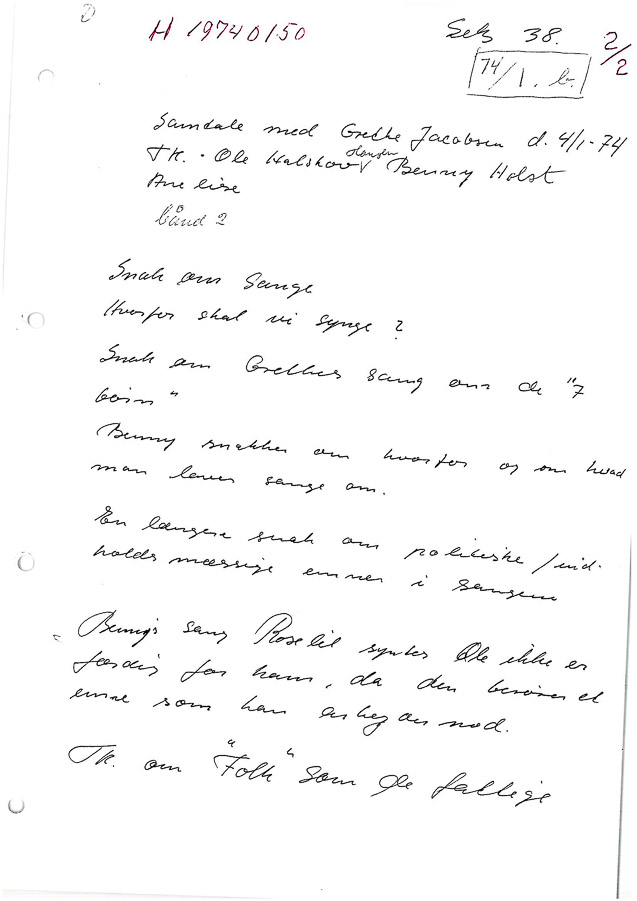 D
H 19740150
38.
2/2
74/1. b.
Samtale med Grethe Jacobsen d. 4/1-74
TK. Ole Halskov Hansen Benny Holst
Ane lise
bånd 2
Snak om Sange
Hvorfor skal vi synge ?
Snak om Grethes sang om de "7
børn"
Benny snakker om hvorfor og om hvad
man laver sange om.
En længere snak om politiske / ind-
holds mæssige emner i sangene
Bennys sang Roselil synes Ole ikke er
færdig for ham, da den berører et
emne som han arbejder med.
TK. om "Folk" som de fattige